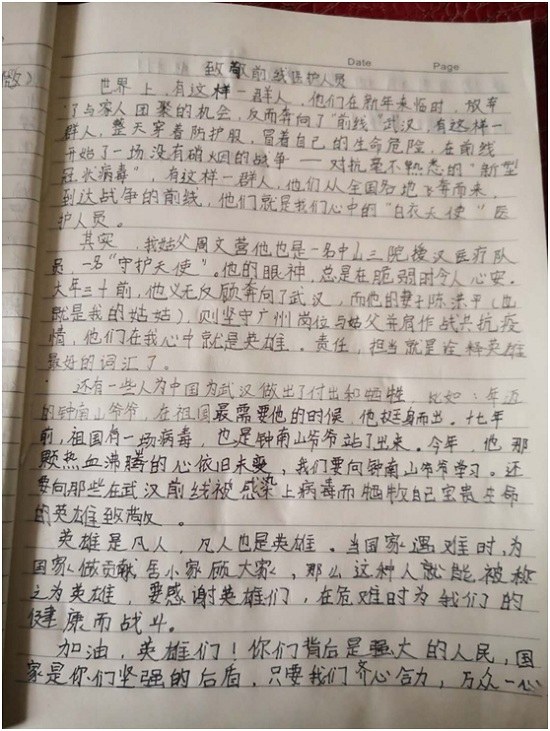 微）
Date Page
致敬前线医护人员
世界上，有这样一群人，他们在新年来临时，放弃
了与家人团聚的机会，反而奔向了"前线"武汉，有这样一
群人，整天穿着防护服，冒着自己的生命危险，在前线
开始了一场没有硝火回的战争——对抗毫不熟悉的"新型
冠状病毒"，有这样一群人，他们从全国各地飞奔而来，
到达战争的前线，他们就是我们心中的"白衣天使"医
护人员。
其实，我姑父周文营他也是一名中山三院援汉医疗队
员，一名"守护天使"。他的眼神，总是在脆弱时令人心安。
大年三十前，他义无反顾奔向了武汉，而他的妻子陈洪平（也
就是我的姑姑）则坚守广州岗位与姑父并肩作战共抗疫
情，他们在我心中就是英雄。责任，担当就是诠释英雄
最好的词汇了。
还有一些人为中国为武汉做出了付出和牺牲，比如：年迈
的钟南山爷爷，在祖国最需要他的时候，他挺身而出。十七年
前，祖国有一场病毒，也是钟南山爷爷站了出来。今年，他那
颗热血沸腾的心依旧未变，我们要向钟南山爷爷学习。还
要向那些在武汉前线被感染上病毒而牺牲自己宝贵生命
的英雄致敬。
英雄是凡人，凡人也是英雄。当国家遇难时，为
国家做贡献，居小家顾大家，那么这种人就能被称
之为英雄，要感谢英雄们，在危难时为我们的
健康而战斗。
加油，英雄们！你们背后是强大的人民，国
家是你们坚强的后盾，只要我们齐心合力，万众一心